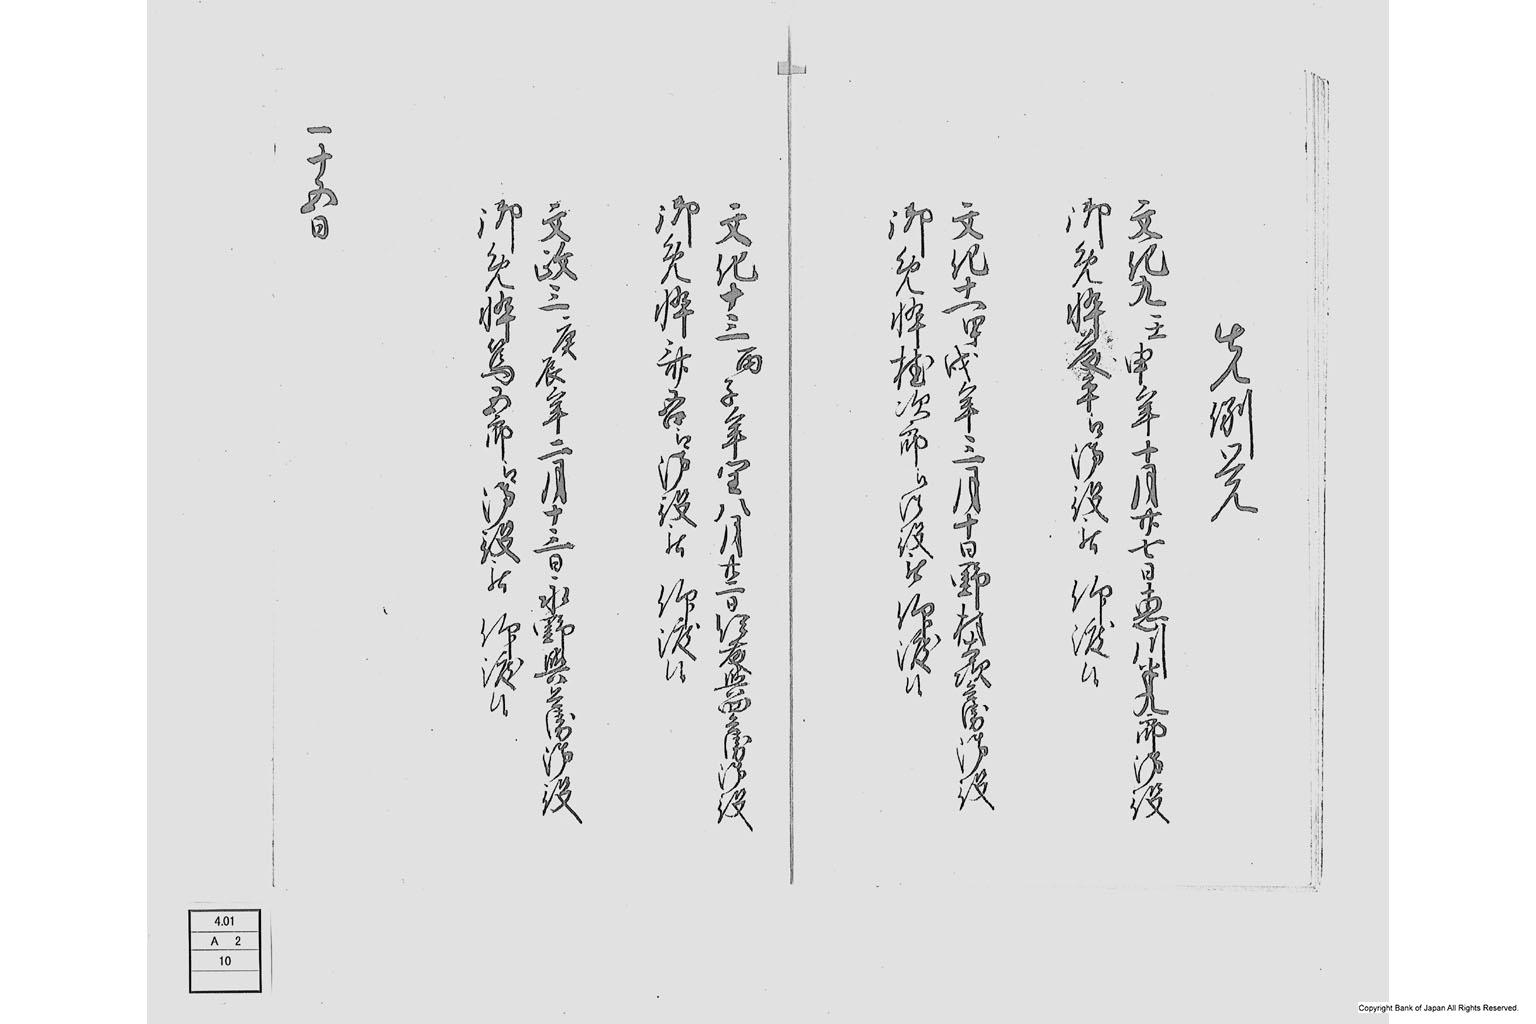 先例覚
文化九壬申年十月廿七日恵川半九郎湯役
御免悴 平江湯役被 仰渡候
文化十一甲戌年三月十日野村 兵衛湯役
御免悴植次郎江湯役被 仰渡候
文化十三丙子年閏八月廿二日 兵衛湯役
御免悴 吾江湯役被 仰渡候
文政三庚辰年二月十三日永野興兵衛湯役
御免悴篤五郎江湯役被 仰渡候
一十五日
4.01
A 2
10
Copyright Bank of Japan All Rights Reserved.